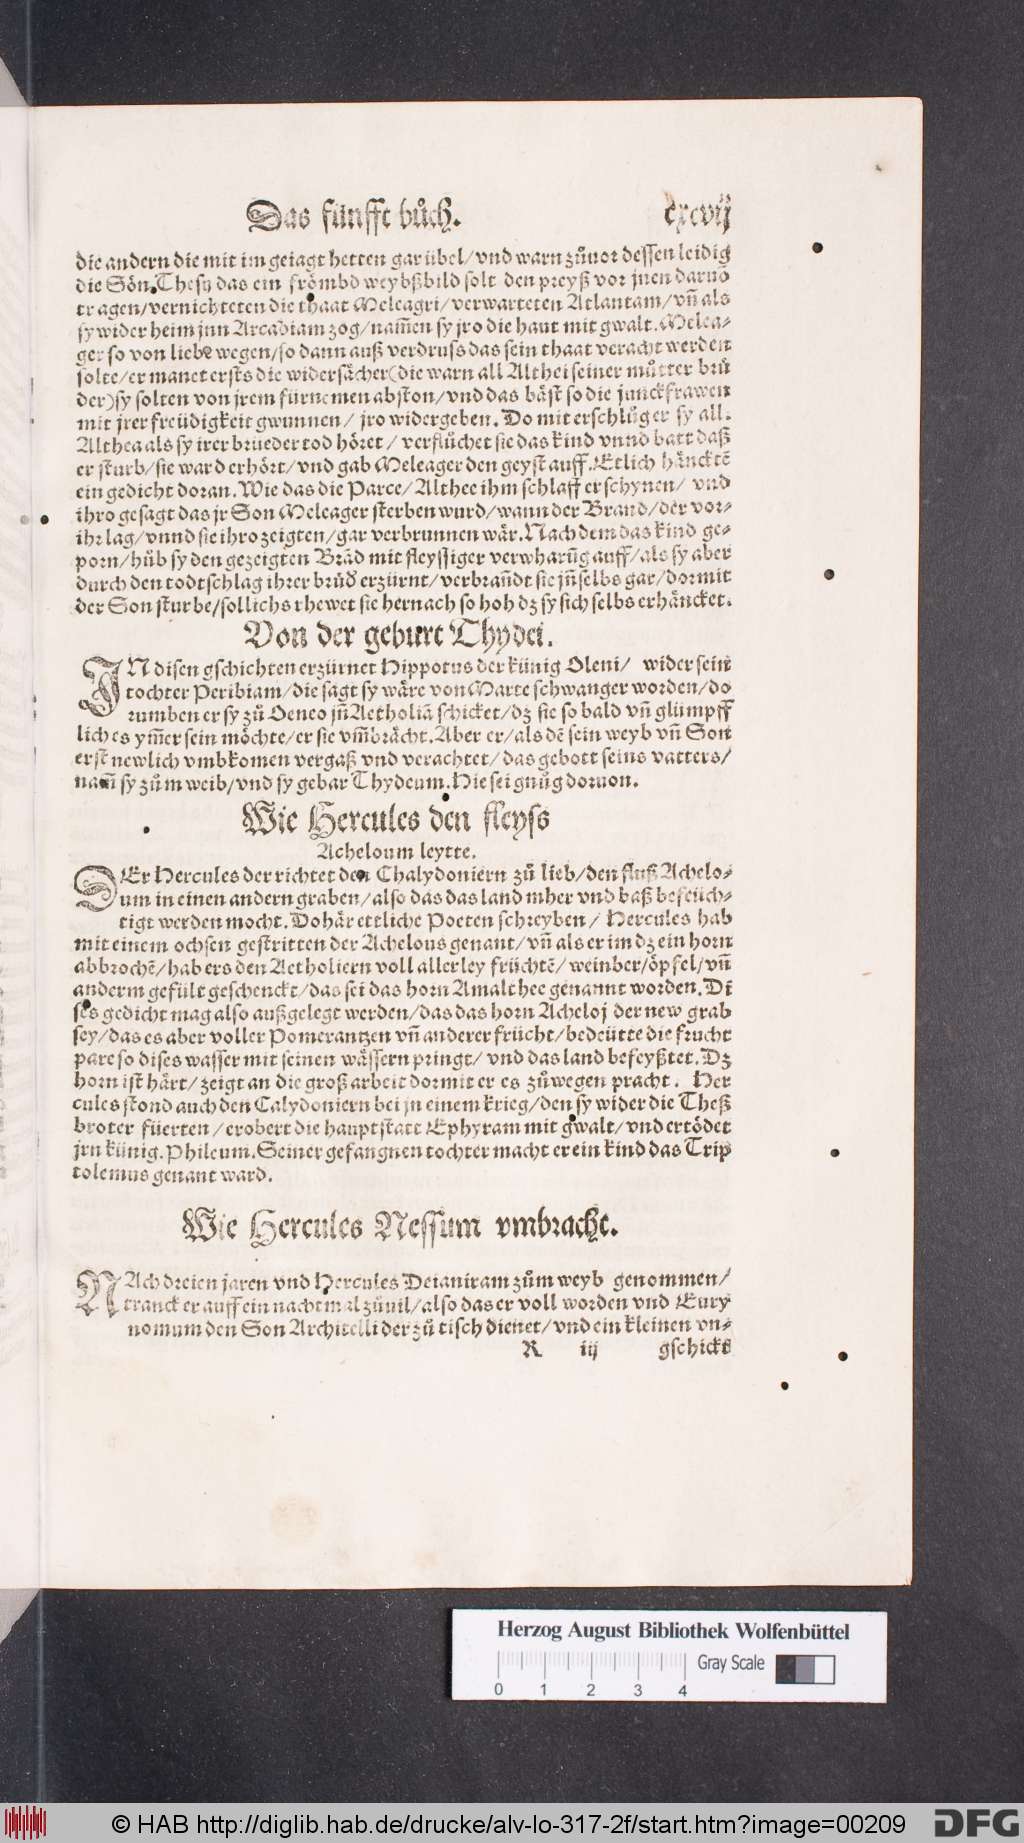 Das fünfft bůch. cxcvij
die andern die mit im geiagt hetten gar übel/vnd warn zůuor dessen leidig
die Sön Thesij das ein frömbd weybßbild solt den preyß vor jnen daruõ
tragen/vernichteten die thaat Meleagri/verwarteten Atlantam/vñ als
sy wider heim jnn Arcadiam zog/nam̃en sy jro die haut mit gwalt. Melea-
ger so von liebe wegen/so dann auß verdruss das sein thaat veracht werden
solte/er manet ersts die widersächer(die warn all Althei seiner můtter brů
der)sy solten von jrem fürnemen abston/vnd das bäst so die junckfrawen
mit jrer freüdigkeit gwunnen/ jro widergeben. Do mit erschlůg er sy all.
Althea als sy irer brueder tod höret/ verflůchet sie das kind vnnd batt daß
er sturb/sie ward erhört/vnd gab Meleager den geyst auff. Etlich häncktẽ
ein gedicht doran. Wie das die Parce/Althee ihm schlaff erschynen/ vnd
ihro gesagt das jr Son Meleager sterben wurd/wann der Brand/der vor-
ihr lag/vnnd sie ihro zeigten/gar verbrunnen wär. Nach dem das kind ge-
porn/hůb sy den gezeigten Brãd mit fleyssiger verwharũg auff/als sy aber
durch den todtschlag ihrer brůd̃ erzürnt/verbrañdt sie jñ selbs gar/dormit
der Son sturbe/sollichs rhewet sie hernach so hoh dz sy sich selbs erhäncket.
Von der geburt Thydei.
IN disen gschichten erzürnet Hippotus der künig Oleni/ wider sein
tochter Peribiam/die sagt sy wäre von Marte schwanger worden/do
rumben er sy zů Oeneo jñ Aetholiã schicket/dz sie so bald vñ glümpff
lich es ym̃er sein möchte/er sie vm̃brächt. Aber er/als dẽ sein weyb vñ Son
erst newlich vmbkomen vergaß vnd verachtet/das gebott seins vatters/
nam̃ sy zům weib/vnd sy gebar Thydeum. Hie sei gnůg doruon.
Wie Hercules den fleyss
Acheloum leytte.
DEr Hercules der richtet den Chalydoniern zů lieb/den fluß Achelo-
um in einen andern graben/also das das land mher vnd baß befeüch-
tigt werden mocht. Dohär ettliche Poeten schreyben/ Hercules hab
mit einem ochsen gestritten der Achelous genant/vñ als er im dz ein horn
abbrochẽ/hab ers den Aetholiern voll allerley früchtẽ/weinber/öpfel/vñ
anderm gefült geschenckt/das sei das horn Amalthee genannt worden. Di
ses gedicht mag also außgelegt werden/das das horn Acheloj der new grab
sey/das es aber voller Pomerantzen vñ anderer frücht/bedeütte die frucht
pare so dises wasser mit seinen wässern pringt/ vnd das land befeyßtet. Dz
horn ist härt/zeigt an die groß arbeit dormit er es zůwegen pracht. Her
cules stond auch den Calydoniern bei in einem krieg/den sy wider die Theß
broter füerten/erobert die hauptstatt Ephyram mit gwalt/vnd ertödet
jrn künig. Phileum. Seiner gefangnen tochter macht er ein kind das Trip
tolemus genant ward.
Wie Hercules Nessum vmbracht.
NAch dreien jaren vnd Hercules Deianiram zům weyb genommen/
tranck er auff ein nachtmal zůuil/also das er voll worden vnd Eury
nomum den Son Architelli der zů tisch dienet/vnd ein kleinen vn-
R iij gschicks
Herzog August Bibliothek Wolfenbüttel
Gray Scale
0 1 2 3 4
© HAB http://diglib.hab.de/drucke/alv-lo-317-2f/start.htm?image=00209 DFG